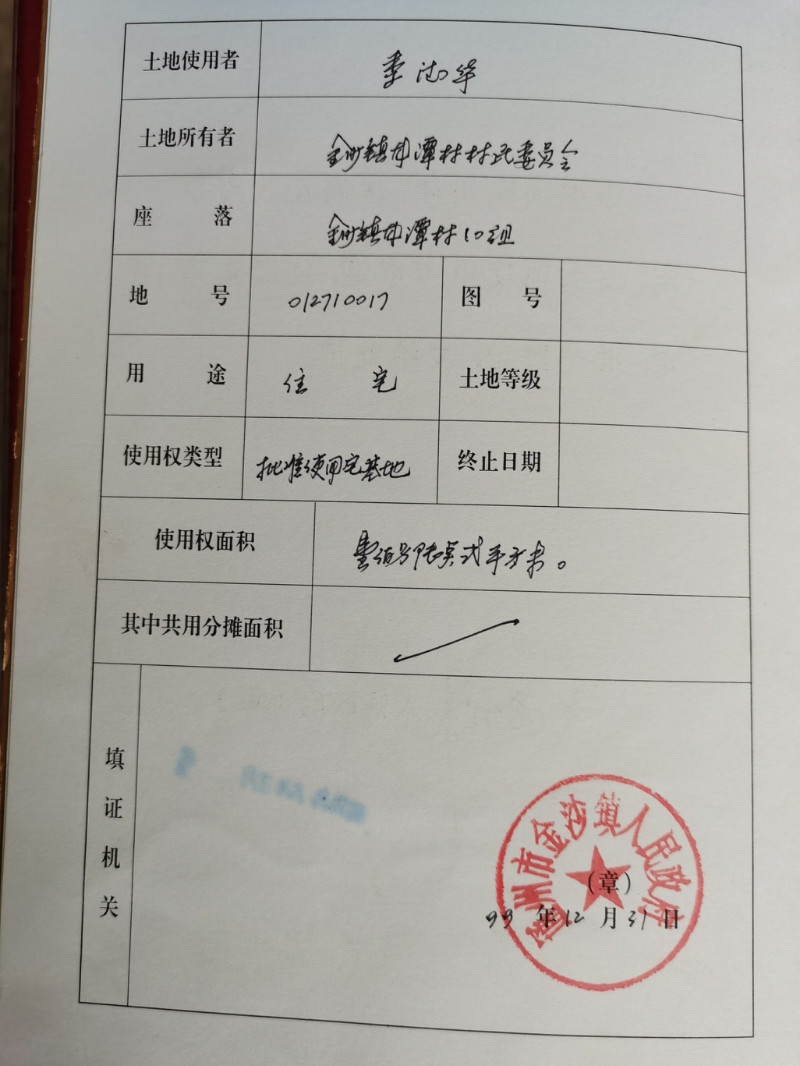 土地使用者 李 华
土地所有者 金沙镇 潭村村民委员会
座 落 金沙镇 潭村10组
地 号 012710017 图 号
用 途 住 宅 土地等级
使用权类型 批准使用宅基地 终止日期
使用权面积
其中共用分摊面积
填证机关
州市金沙镇人民政府
(章)
99 年 12 月 31 日